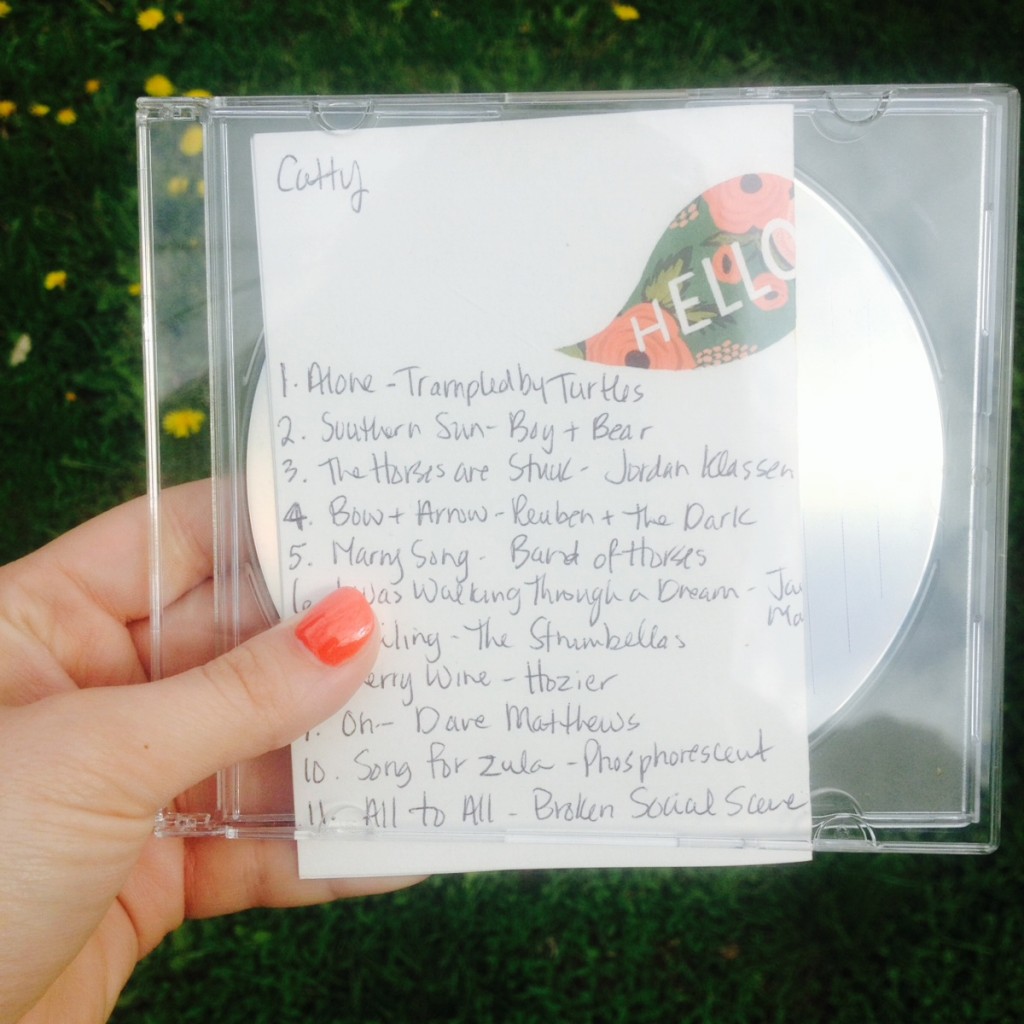 Catty
HELLO
1. Alone - Trampled by Turtles
2. Southern Sun - Boy + Bear
3. The Horses are Stuck - Jordan Klassen
4. Bow + Arrow - Reuben + the Dark
5. Marry Song - Band of Horses
Was Walking Through a Dream -
- The Strumbellas
Wine - Hozier
Oh - Dave Matthews
10. Song for Zula - Phosphorescent
11. All to All - Broken Social Scene